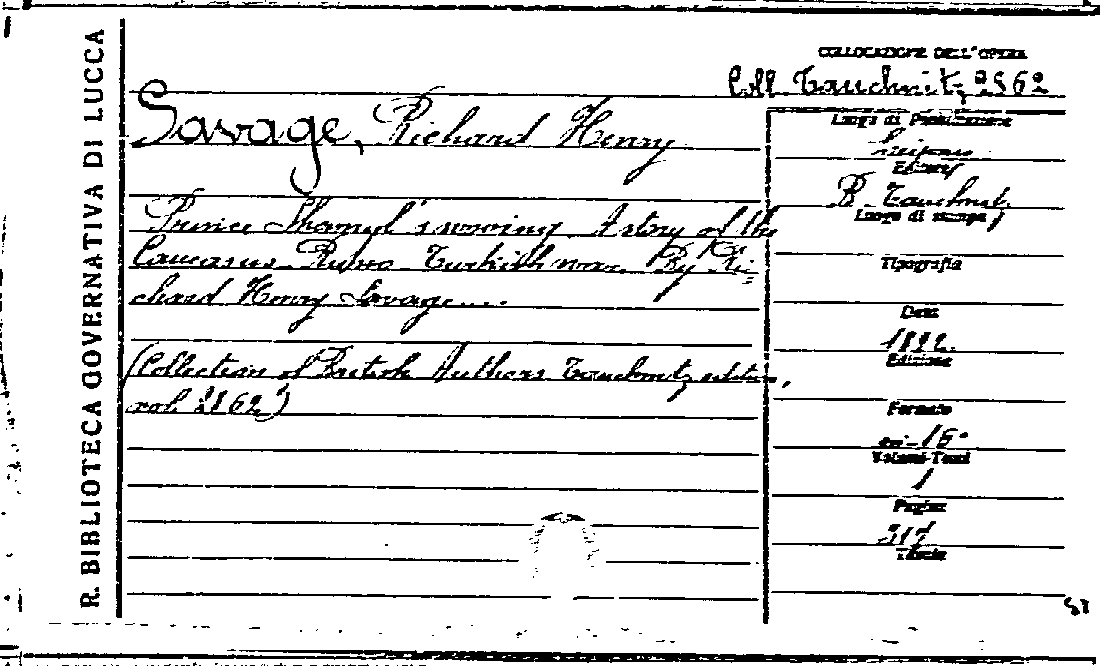 R. BIBLIOTECA GOVERNATIVA DI LUCCA
COLLOCAZIONE DELL'OPERA
Coll. Tauchnitz 2862
Savage, Richard Henry
Prince Shamyl's wooing. A story of the
Caucasus Russo-Turkish war. By Ri=
chard Henry Savage....
(Collection of British Authors Tauchnitz edition,
vol. 2862)
Luogo di Pubblicazione
Leipzig
Editore
B. Tauchnitz
Luogo di stampa
Tipografia
Data
1892.
Edizione
Formato
in-16°
Volumi-Tomi
1
Pagine
Tavole